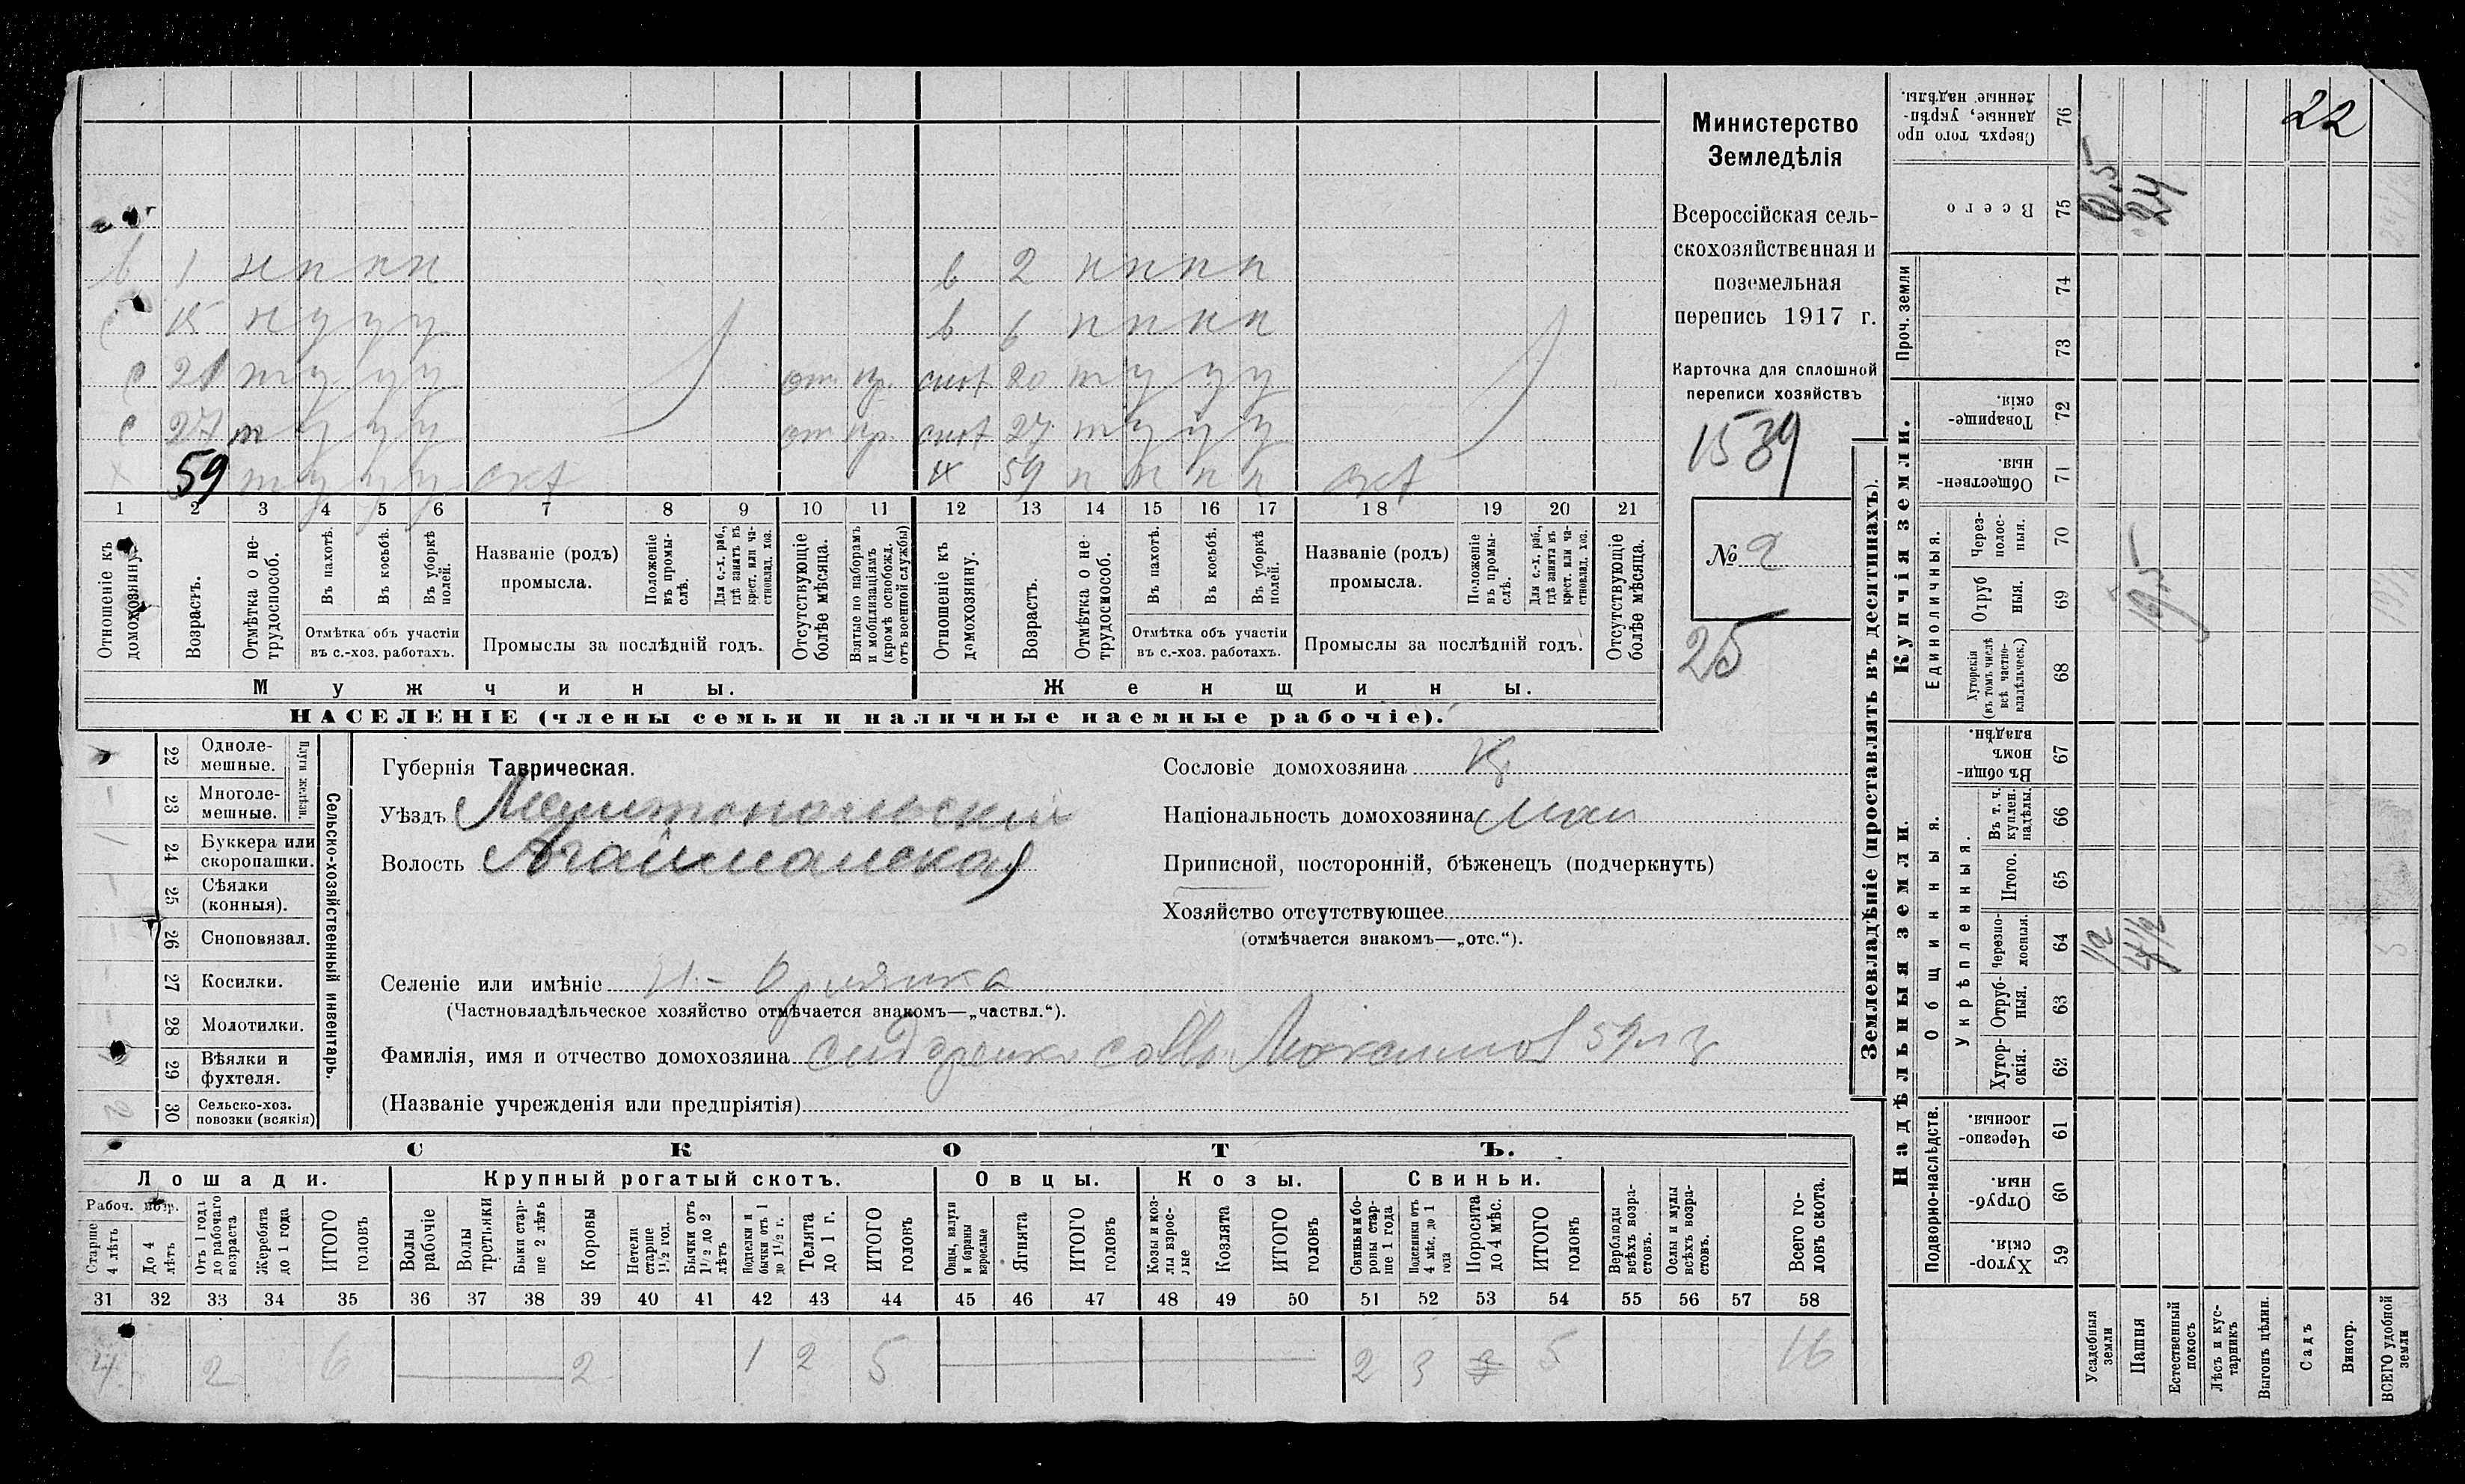 Министерство
Земледѣлія
Всероссійская сель-
скохозяйственная и
поземельная
перепись 1917 г.
Карточка для сплошной
переписи хозяйствъ
1539
№ 2
25
22
в 1 н н н н в 2 н н н н
с 15 н у у у в 6 н н н н
с 21 т у у у от. пр. снох 20 т у у у
с 27 т у у у от пр. снох 27 т у у у
х 59 т у у у ж 59 н н н н
1 2 3 4 5 6 7 8 9 10 11 12 13 14 15 16 17 18 19 20 21
Отношеніе къ домохозяину.
Возрастъ.
Отмѣтка о не-
трудоспособ.
Въ пахотѣ.
Въ косьбѣ.
Въ уборкѣ
полей.
Отмѣтка объ участіи
въ с.-хоз. работахъ.
Названіе (родъ)
промысла.
Положеніе
въ промы-
слѣ.
Для с.-х. раб.,
гдѣ занятъ въ
крест. или ча-
стновлад. хоз.
Промыслы за послѣдній годъ.
Отсутствующіе
болѣе мѣсяца.
Взятые по наборамъ
и мобилизаціямъ
(кромѣ освобожд.
отъ военной службы)
Отношеніе къ
домохозяину.
Возрастъ.
Отмѣтка о не
трудоспособ.
Въ пахотѣ.
Въ косьбѣ.
Въ уборкѣ
полей.
Отмѣтка объ участіи
въ с.-хоз. работахъ.
Названіе (родъ)
промысла.
Положеніе
въ промы-
слѣ.
Для с.-х. раб.,
гдѣ занята въ
крест. или ча-
стновлад. хоз.
Промыслы за послѣдній годъ.
Отсутствующіе
болѣе мѣсяца.
Мужчины.
Женщины.
НАСЕЛЕНІЕ (члены семьи и наличные наемные рабочіе).
22 Одноле-
мешные.
23 Многоле-
мешные.
Плуги желѣзн.
24 Буккера или
скоропашки.
25 Сѣялки
(конныя).
26 Сноповязал.
27 Косилки.
28 Молотилки.
29 Вѣялки и
фухтеля.
30 Сельско-хоз.
повозки (всякія)
2
Сельско-хозяйственный инвентарь.
Губернія Таврическая.
Уѣздъ Мелитопольскій
Волость Агайманская
Селеніе или имѣніе
(Частновладѣльческое хозяйство отмѣчается знакомъ—„частвл.“).
Фамилія, имя и отчество домохозяина Савва
(Названіе учрежденія или предпріятія)
Сословіе домохозяина Кр
Національность домохозяина Мал
Приписной, посторонній, бѣженецъ (подчеркнуть)
Хозяйство отсутствующее
(отмѣчается знакомъ—„отс.“).
СКОТЪ.
Лошади.
Крупный рогатый скотъ.
Овцы.
Козы.
Свиньи.
Рабоч. возр.
Старше
4 лѣтъ
До 4
лѣтъ
Отъ 1 года
до рабочаго
возраста
Жеребята
до 1 года
ИТОГО
головъ
Волы
рабочіе
Волы
третьяки
Быки стар-
ше 2 лѣтъ
Коровы
Нетели
старше
1½ год.
Бычки отъ
1½ до 2
лѣтъ
Подтелки и
бычки отъ 1
до 1½ г.
Телята
до 1 г.
ИТОГО
головъ
Овцы, валухи
и бараны
взрослые
Ягнята
ИТОГО
головъ
Козы и коз-
лы взрос-
лые
Козлята
ИТОГО
головъ
Свиньи и бо-
ровы стар-
ше 1 года
Подсвинки отъ
4 мѣс. до 1
года
Поросята
до 4 мѣс.
ИТОГО
головъ
Верблюды
всѣхъ возра-
стовъ.
Ослы и мулы
всѣхъ возра-
стовъ.
Всего го-
ловъ скота.
31 32 33 34 35 36 37 38 39 40 41 42 43 44 45 46 47 48 49 50 51 52 53 54 55 56 57 58
4 2 6 2 1 2 5 2 3 5 16
Землевладѣніе (проставлять въ десятинахъ).
Купчія земли.
Надѣльныя земли.
Сверхъ того про
данные, укрѣп-
ленные надѣлы.
76
Всего
75
0,5
24
Проч. земли
74
73
Товарище-
скія.
72
Обществен-
ныя.
71
Единоличныя.
Через-
полос-
ныя.
70
Отруб
ныя.
69
19,5
Хуторскія
(въ томъ числѣ
всѣ частно-
владѣльческ.)
68
Общинныя.
Въ общи-
номъ
владѣн.
67
Укрѣпленныя.
Въ т. ч.
куплен.
надѣлы.
66
Итого.
65
Черезпо-
лосныя.
64
1/2
4 1/2
Отруб-
ныя.
63
Хутор-
скія.
62
Подворно-наслѣдств.
Черезпо-
лосныя.
61
Отруб-
ныя.
60
Хутор-
скія.
59
Усадебныя
земли
Пашня
Естественный
покосъ
Лѣсъ и кус-
тарникъ
Выгонъ цѣлин.
Садъ
Виногр.
ВСЕГО удобной
земли